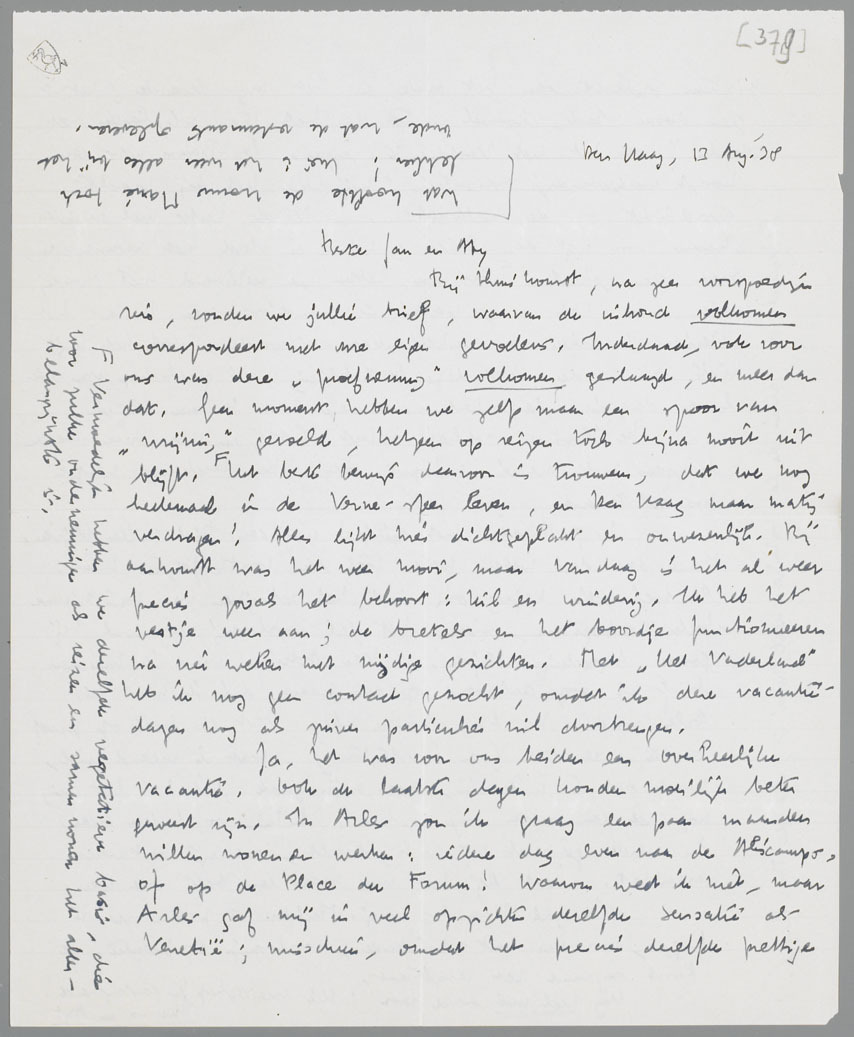 [379]
Den Haag, 13 Aug. '38
Beste Jan en Aty
Bij thuiskomst, na zeer voorspoedige
reis, vonden we jullie brief, waarvan de inhoud volkomen
correspondeert met onze eigen gevoelens. Inderdaad, ook voor
ons was deze „proefneming" volkomen geslaagd, en meer dan
dat. Geen moment hebben we zelfs maar een spoor van
„wrijving" gevoeld, hetgeen op reizen toch bijna nooit uit
blijft. F Het beste bewijs daarvoor is trouwens, dat we nog
helemaal in de Verne-sfeer leven, en Den Haag maar matig
verdragen! Alles lijkt hier dichtgeplakt en onwezenlijk. Bij
aankomst was het weer mooi, maar vandaag is het al weer
precies zoals het behoort: kil en winderig. Ik heb het
vestje weer aan; de bretels en het boordje functioneeren
na drie weken met nijdige gezichten. Met „Het Vaderland"
heb ik nog geen contact gezocht, omdat ik deze vacantie-
dagen nog als zuiver particulier wil doorbrengen.
Ja, het was voor ons beiden een overheerlijke
vacantie. Ook de laatste dagen konden moeilijk beter
geweest zijn. In Arles zou ik graag een paar maanden
willen wonen en werken: iedere dag even naar de Aliscamps,
of op de Place du Forum! Waarom weet ik niet, maar
Arles gaf mij in veel opzichten dezelfde sensatie als
Venetië; misschien, omdat het precies dezelfde prettige
F Vermoedelijk hebben we dezelfde vegetatieve basis, die
voor zulke ondernemingen als reizen en samen wonen het aller-
belangrijkste is.
Wat kookte de vrouw Marie toch
lekker! Hoe is het weer alles bij het
oude, wat de restaurants opleveren.